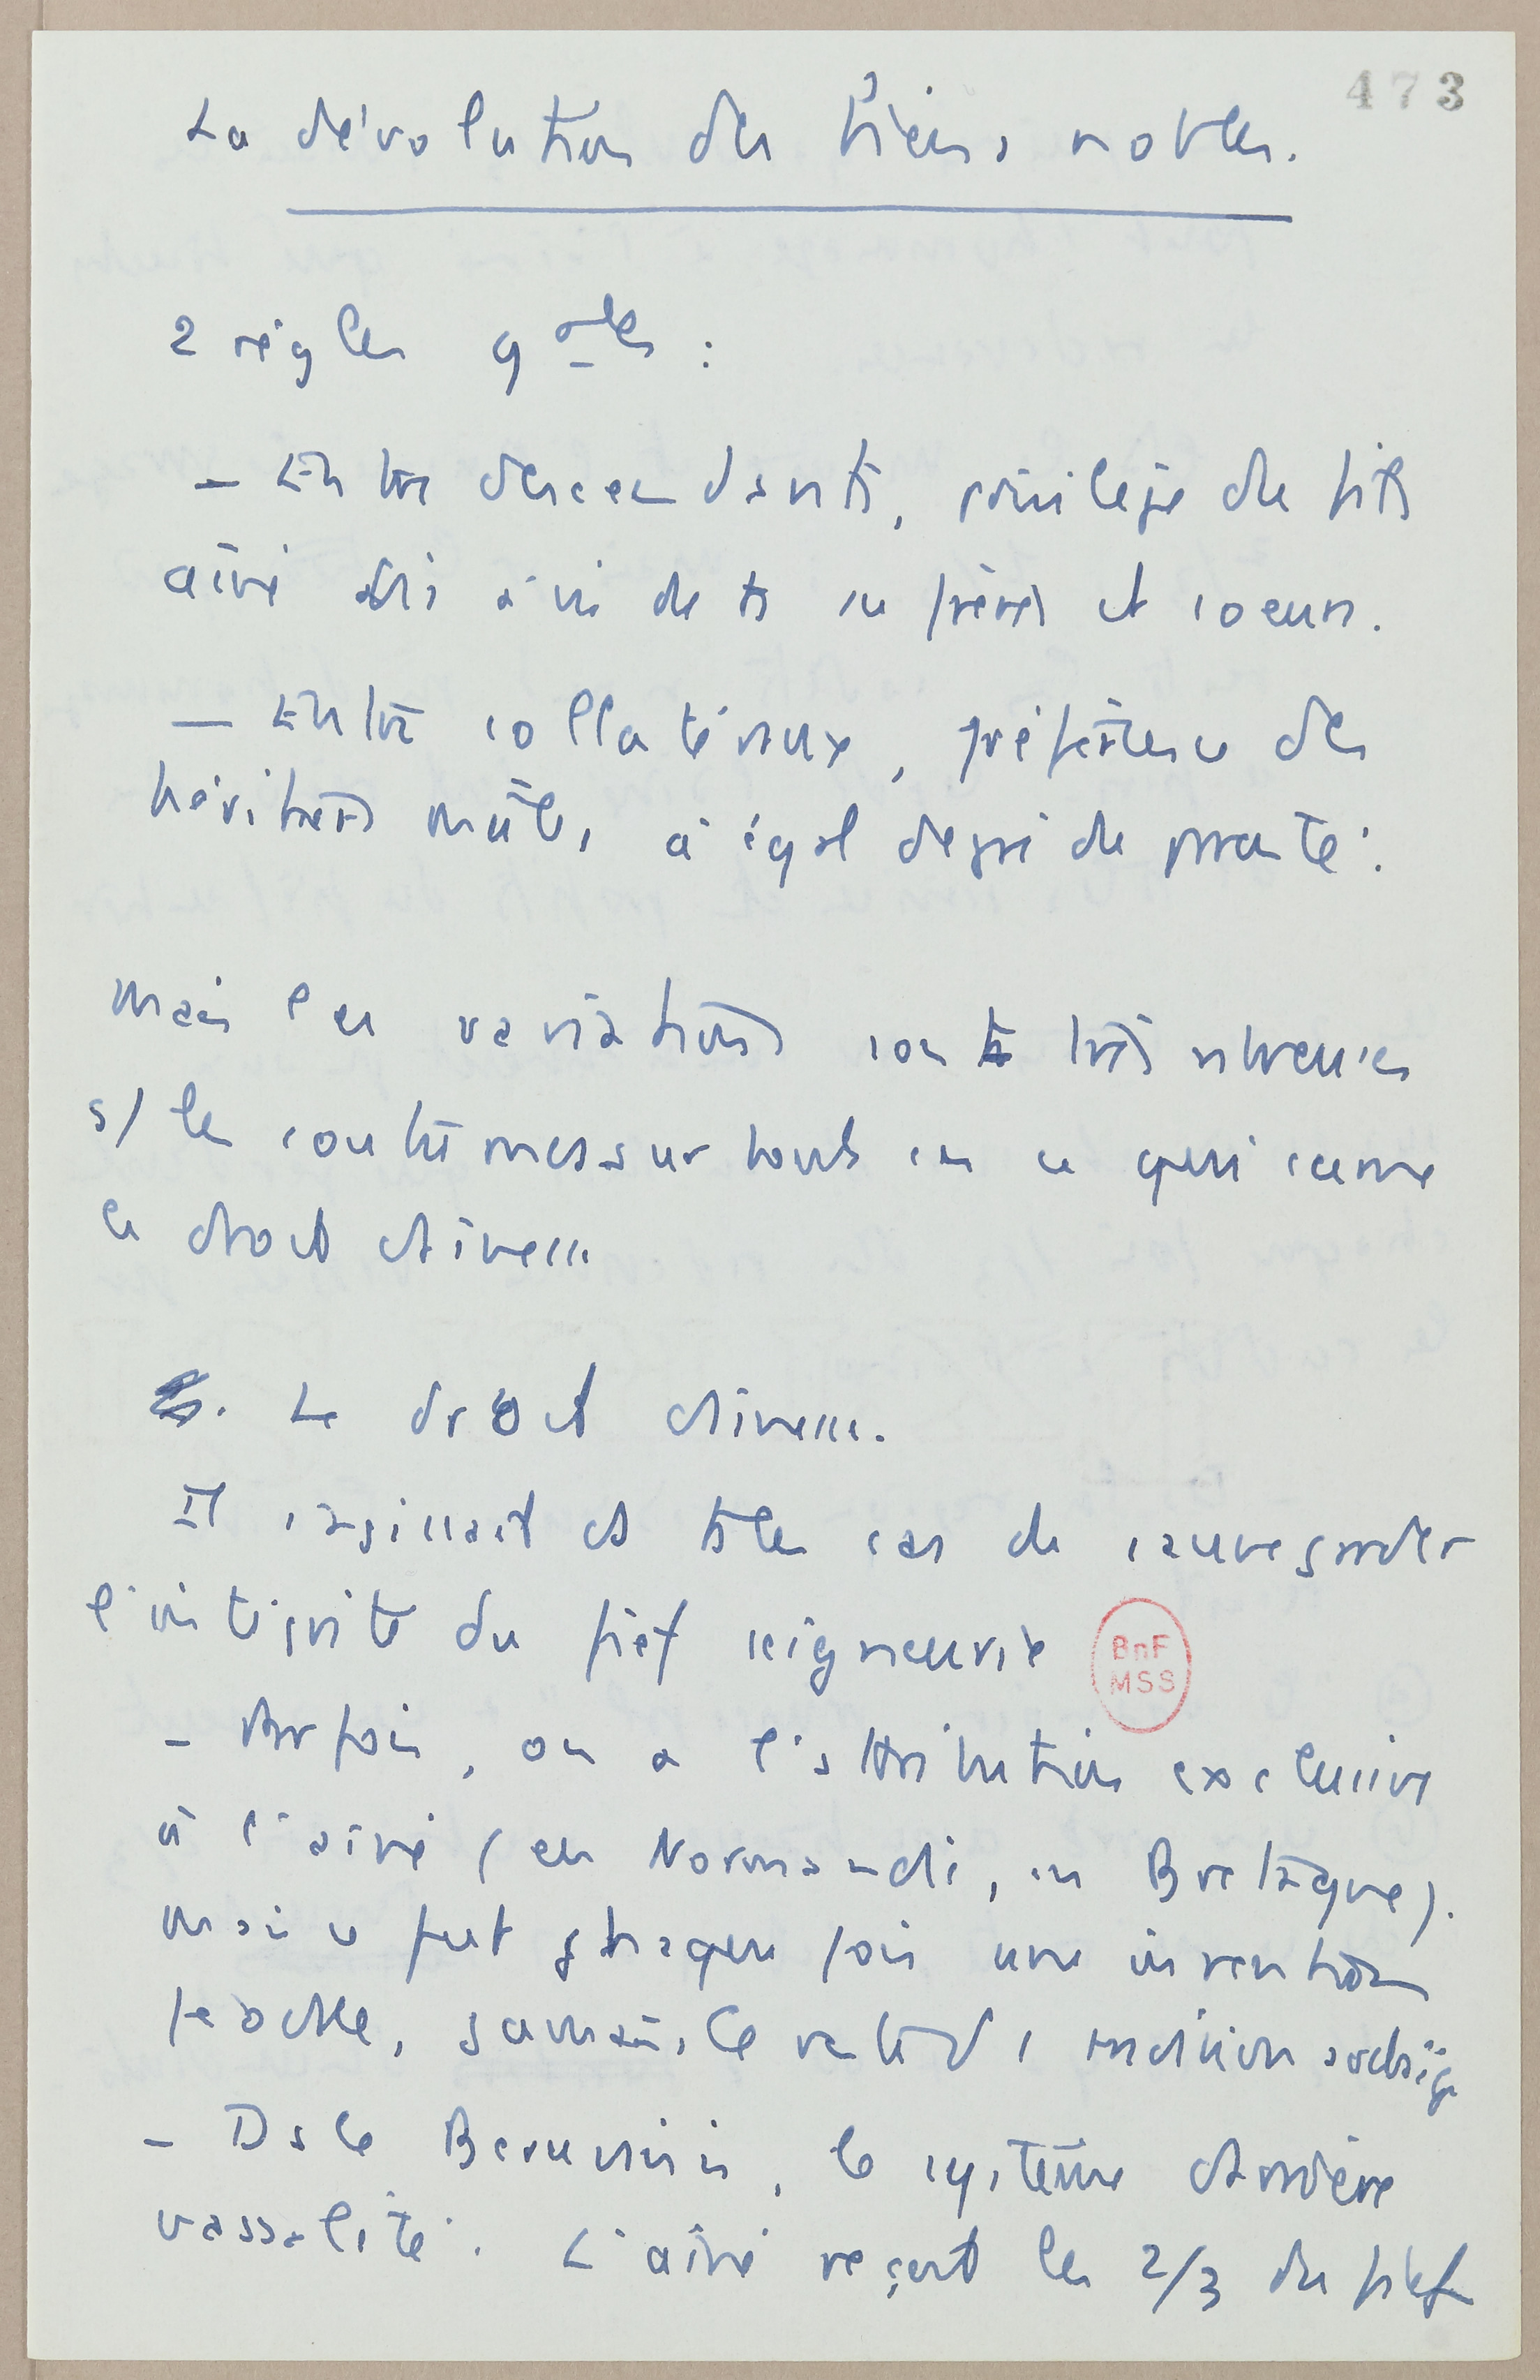 473
La dévolution des biens nobles.
2 règles gales :
- Entre descendants, privilège du fils
aîné vis à vis de ts ses frères et soeurs.
- Entre collatéraux, préférence des
héritiers mâles, à égal degré de parenté.
Mais les variations sont très nbreuses
s/ les coutumes surtout en ce qui concerne
le droit d'ainesse.
Le droit d'ainesse.
Il s'agissait ds ts les cas de sauvegarder
l'intégrité du fief seigneurie
BnF
MSS
- Parfois, on a l'attribution exclusive
à l'ainé (en Normandie, en Bretagne).
Mais ce fut chaque fois une invention
féodale, jamais le
- Ds le Beauvaisis, le système d'arrière
vassalité. L'aîné reçoit les 2/3 du fief